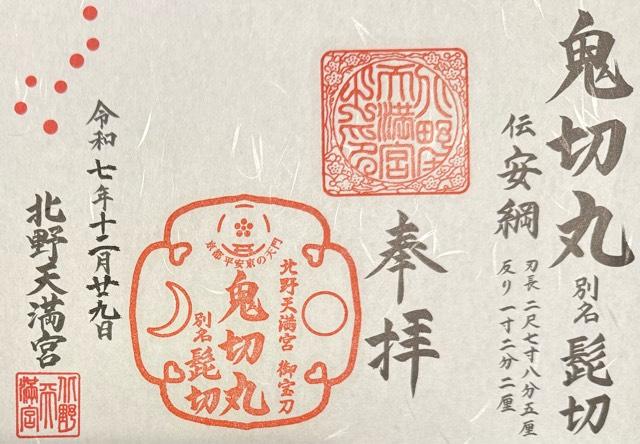 鬼切丸 別名 髭切
伝 安綱
刃長 二尺七寸八分五厘
反り 一寸二分二厘
奉拝
北野天満宮
京都 平安京の天門
北野天満宮 御宝刀
鬼切丸
別名 髭切
令和七年十二月廿九日
北野天満宮
北野天満宮